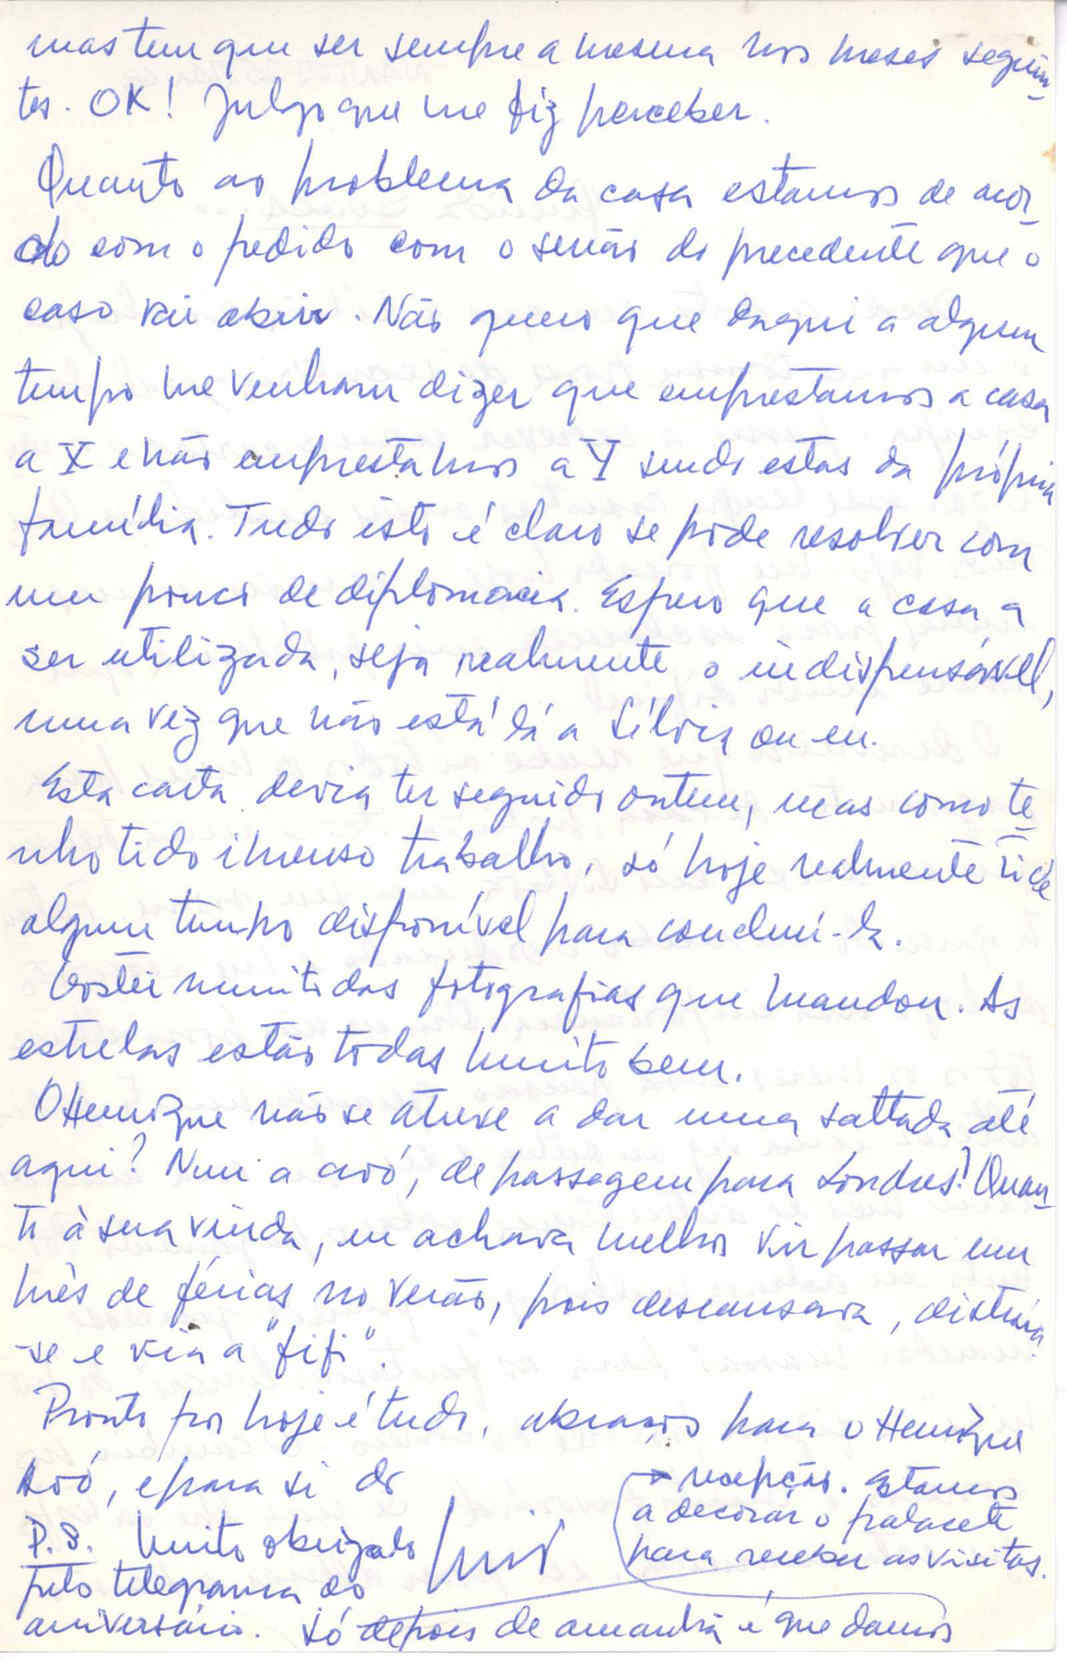 mas tem que ser sempre a mesma nos meses seguin-
tes. OK! Julgo que me fiz perceber.
Quanto ao problema da casa estamos de acor-
do com o pedido com o senão do precedente que o
caso vai abrir. Não quero que daqui a algum
tempo me venham dizer que emprestamos a casa
a X e não emprestamos a Y sendo estas da própria
família. Tudo isto é claro se pode resolver com
um pouco de diplomacia. Espero que a casa a
ser utilizada, seja realmente o indispensável,
uma vez que não está lá a Sílvia ou eu.
Esta carta devia ter seguido ontem, mas como te-
nho tido imenso trabalho, só hoje realmente tive
algum tempo disponível para concluí-la.
Gostei muito das fotografias que mandou. As
estrelas estão todas muito bem.
O Henrique não se atreve a dar uma saltada até
aqui? Nem a avó, de passagem para Londres? Quan-
to à sua vinda, eu achava melhor vir passar um
mês de férias no verão, pois descansava, distraía
-se e via a "fifi".
Pronto por hoje é tudo, abraços para o Henrique
avó, e para si do
P.S. Muito obrigado
pelo telegrama do
aniversário. Só depois de amanhã é que damos
recepção. Estamos
a decorar o palacete
para receber as visitas.